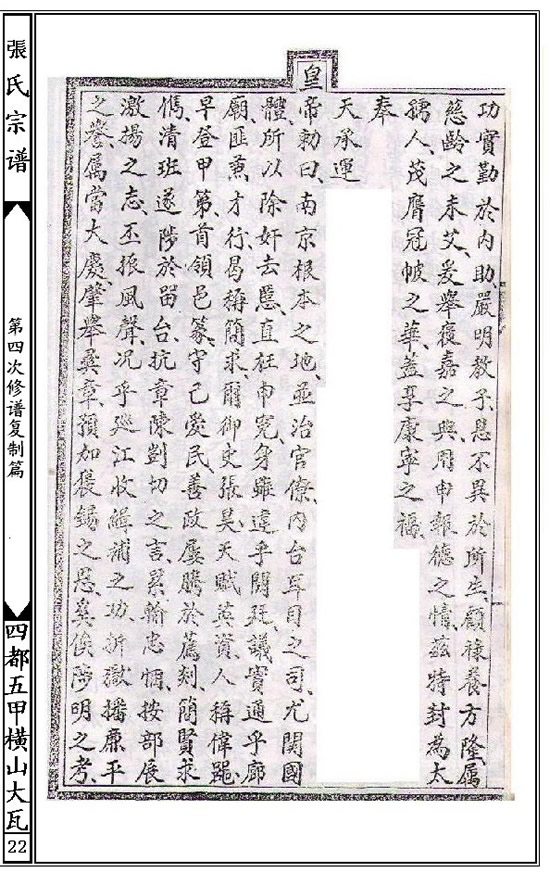 張氏宗谱
第四次修谱复制篇
四都五甲横山大瓦
22
功實勤於内助嚴明教子、恩不異於所生、顧祿養方隆、属
慈齡之未艾、爰舉褒嘉之典、用申報德之情、兹特封為太
孺人、茂膺冠帔之華、益享康寧之福、
奉
天承運
皇
帝勅曰、南京根本之地、並治官僚、内台耳目之司、尤関国
體、所以除奸去慝、直枉申冤、身雖違乎闕廷、議實通乎廊
廟、匪兼才行、曷稱簡求、爾御史張昊、天賦英資、人稱偉器、
早登甲第、首領邑篆、守己愛民、善政屢騰於薦剡、簡賢求
儁、清班遂陟於留台、抗章陳剴切之言、累輸忠悃、按部展
激揚之志、丕振風聲、况乎廵江收緝捕之功、折獄播廉平
之譽、属當大慶、肇舉彝章、預加褒錫之恩、奚俟陟明之考、